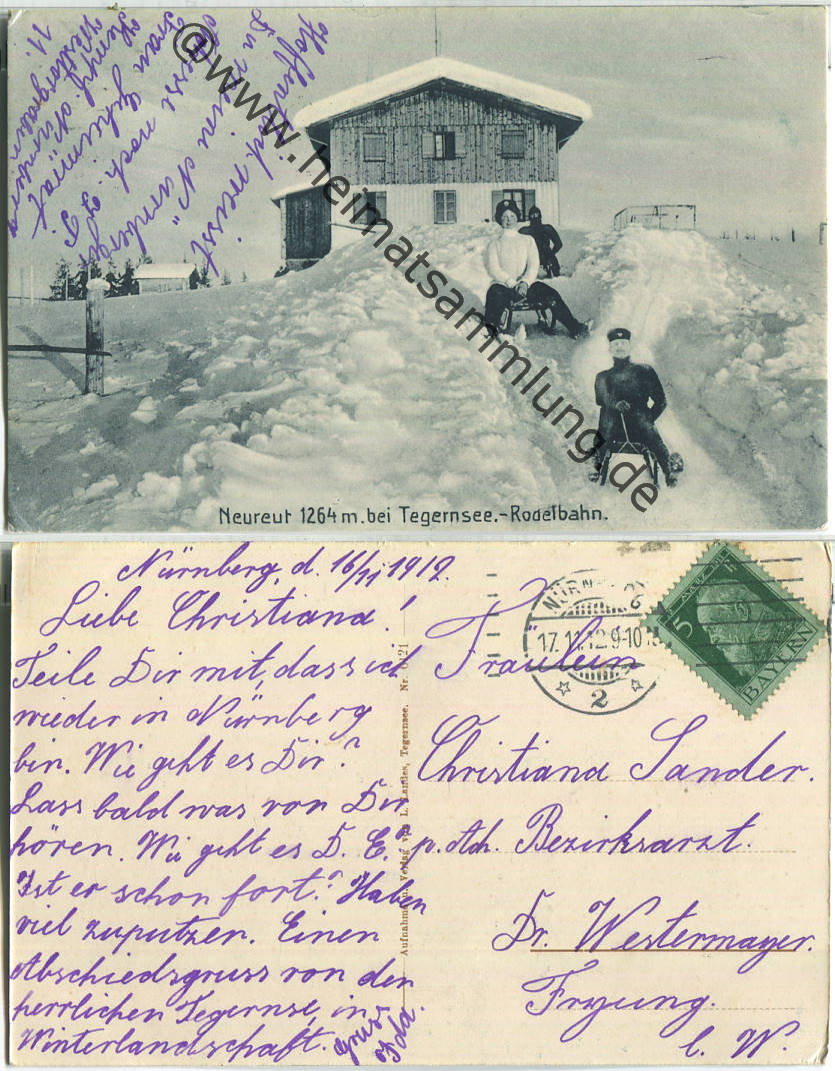 Hoffentlich reusst
Du meine Nürnberger
Adresse noch. z. T.
Fram Lehrmüat
Henrj. Nürnberg
Westergraben
11.
@www.heimatsammlung.de
Neureut 1264 m. bei Tegernsee.-Rodelbahn.
Nürnberg, d. 16/11 1912.
Liebe Christiana!
Teile Dir mit, dass ich
wieder in Nürnberg
bin. Wie geht es Dir?
Lass bald was von Dir
hören. Wie geht es D. E.?
Ist er schon fort? Haben
viel zuputzen. Einen
Abschiedsgruss von der
herrlichen Tegernse, in
Winterlandschaft. Gruss
Ida.
Aufnahme u. Verlag L. Landes, Tegernsee. Nr.
NÜRN
17.11.12.9-10
2
5
BAYERN
Fräulein
Christiana Sander.
p. Ad. Bezirksarzt.
Dr. Westermayer.
Fryung.
b. W.